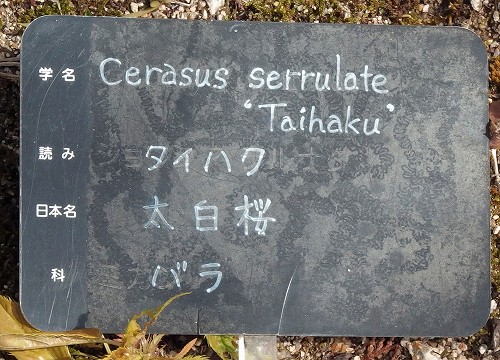 学名 Cerasus serrulate
'Taihaku'
読み タイハク
日本名 太白桜
科 バラ